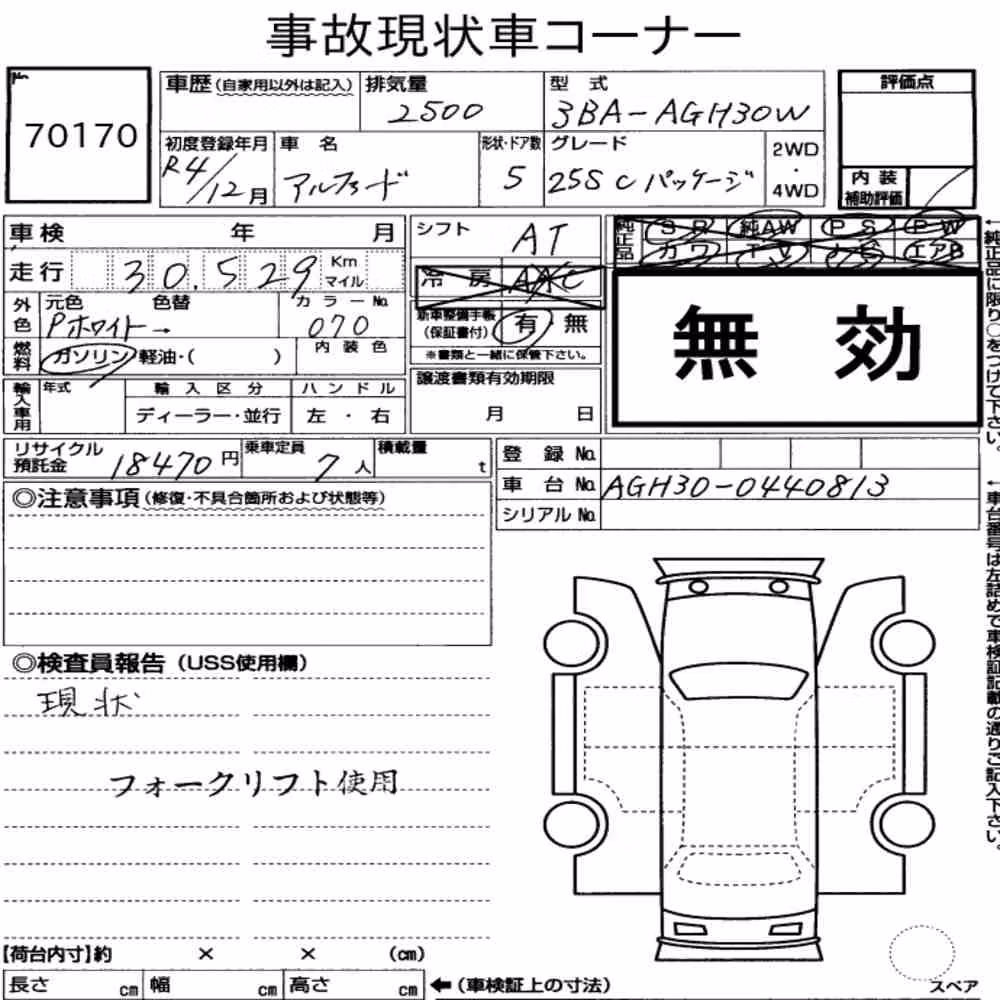 事故現状車コーナー
№
70170
車歴(自家用以外は記入)
排気量
2500
型 式
3BA-AGH30W
評価点
初度登録年月
R4/12月
車 名
アルファード
形状・ドア数
5
グレード
25S C パッケージ
2WD
・
4WD
内 装
補助評価
車検 年 月
走行 30.529 Km
マイル
シフト
AT
冷 房 AAC
純正品
SR 純AW PS PW
カワ TV ナビ エアB
←純正品に限り○をつけて下さい。
無 効
外色
元色 色替
Pホワイト→
カラーNo.
070
内 装 色
燃料
ガソリン・軽油・( )
新車整備手帳
(保証書付)
有・無
※書類と一緒に保管下さい。
輸入車用
年式
輸 入 区 分
ディーラー・並行
ハ ン ド ル
左 ・ 右
譲渡書類有効期限
月 日
リサイクル
預託金
18470円
乗車定員
7人
積載量
t
登 録 No.
車 台 No. AGH30-0440813
シリアルNo.
←車台番号は左詰めで車検証記載の通りご記入下さい。
◎注意事項(修復・不具合箇所および状態等)
◎検査員報告(USS使用欄)
現状
フォークリフト使用
【荷台内寸】約 × × (cm)
長さ cm 幅 cm 高さ cm ←(車検証上の寸法)
スペア